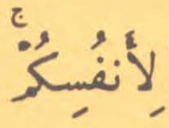 لِأَنفُسِكُمْۚ